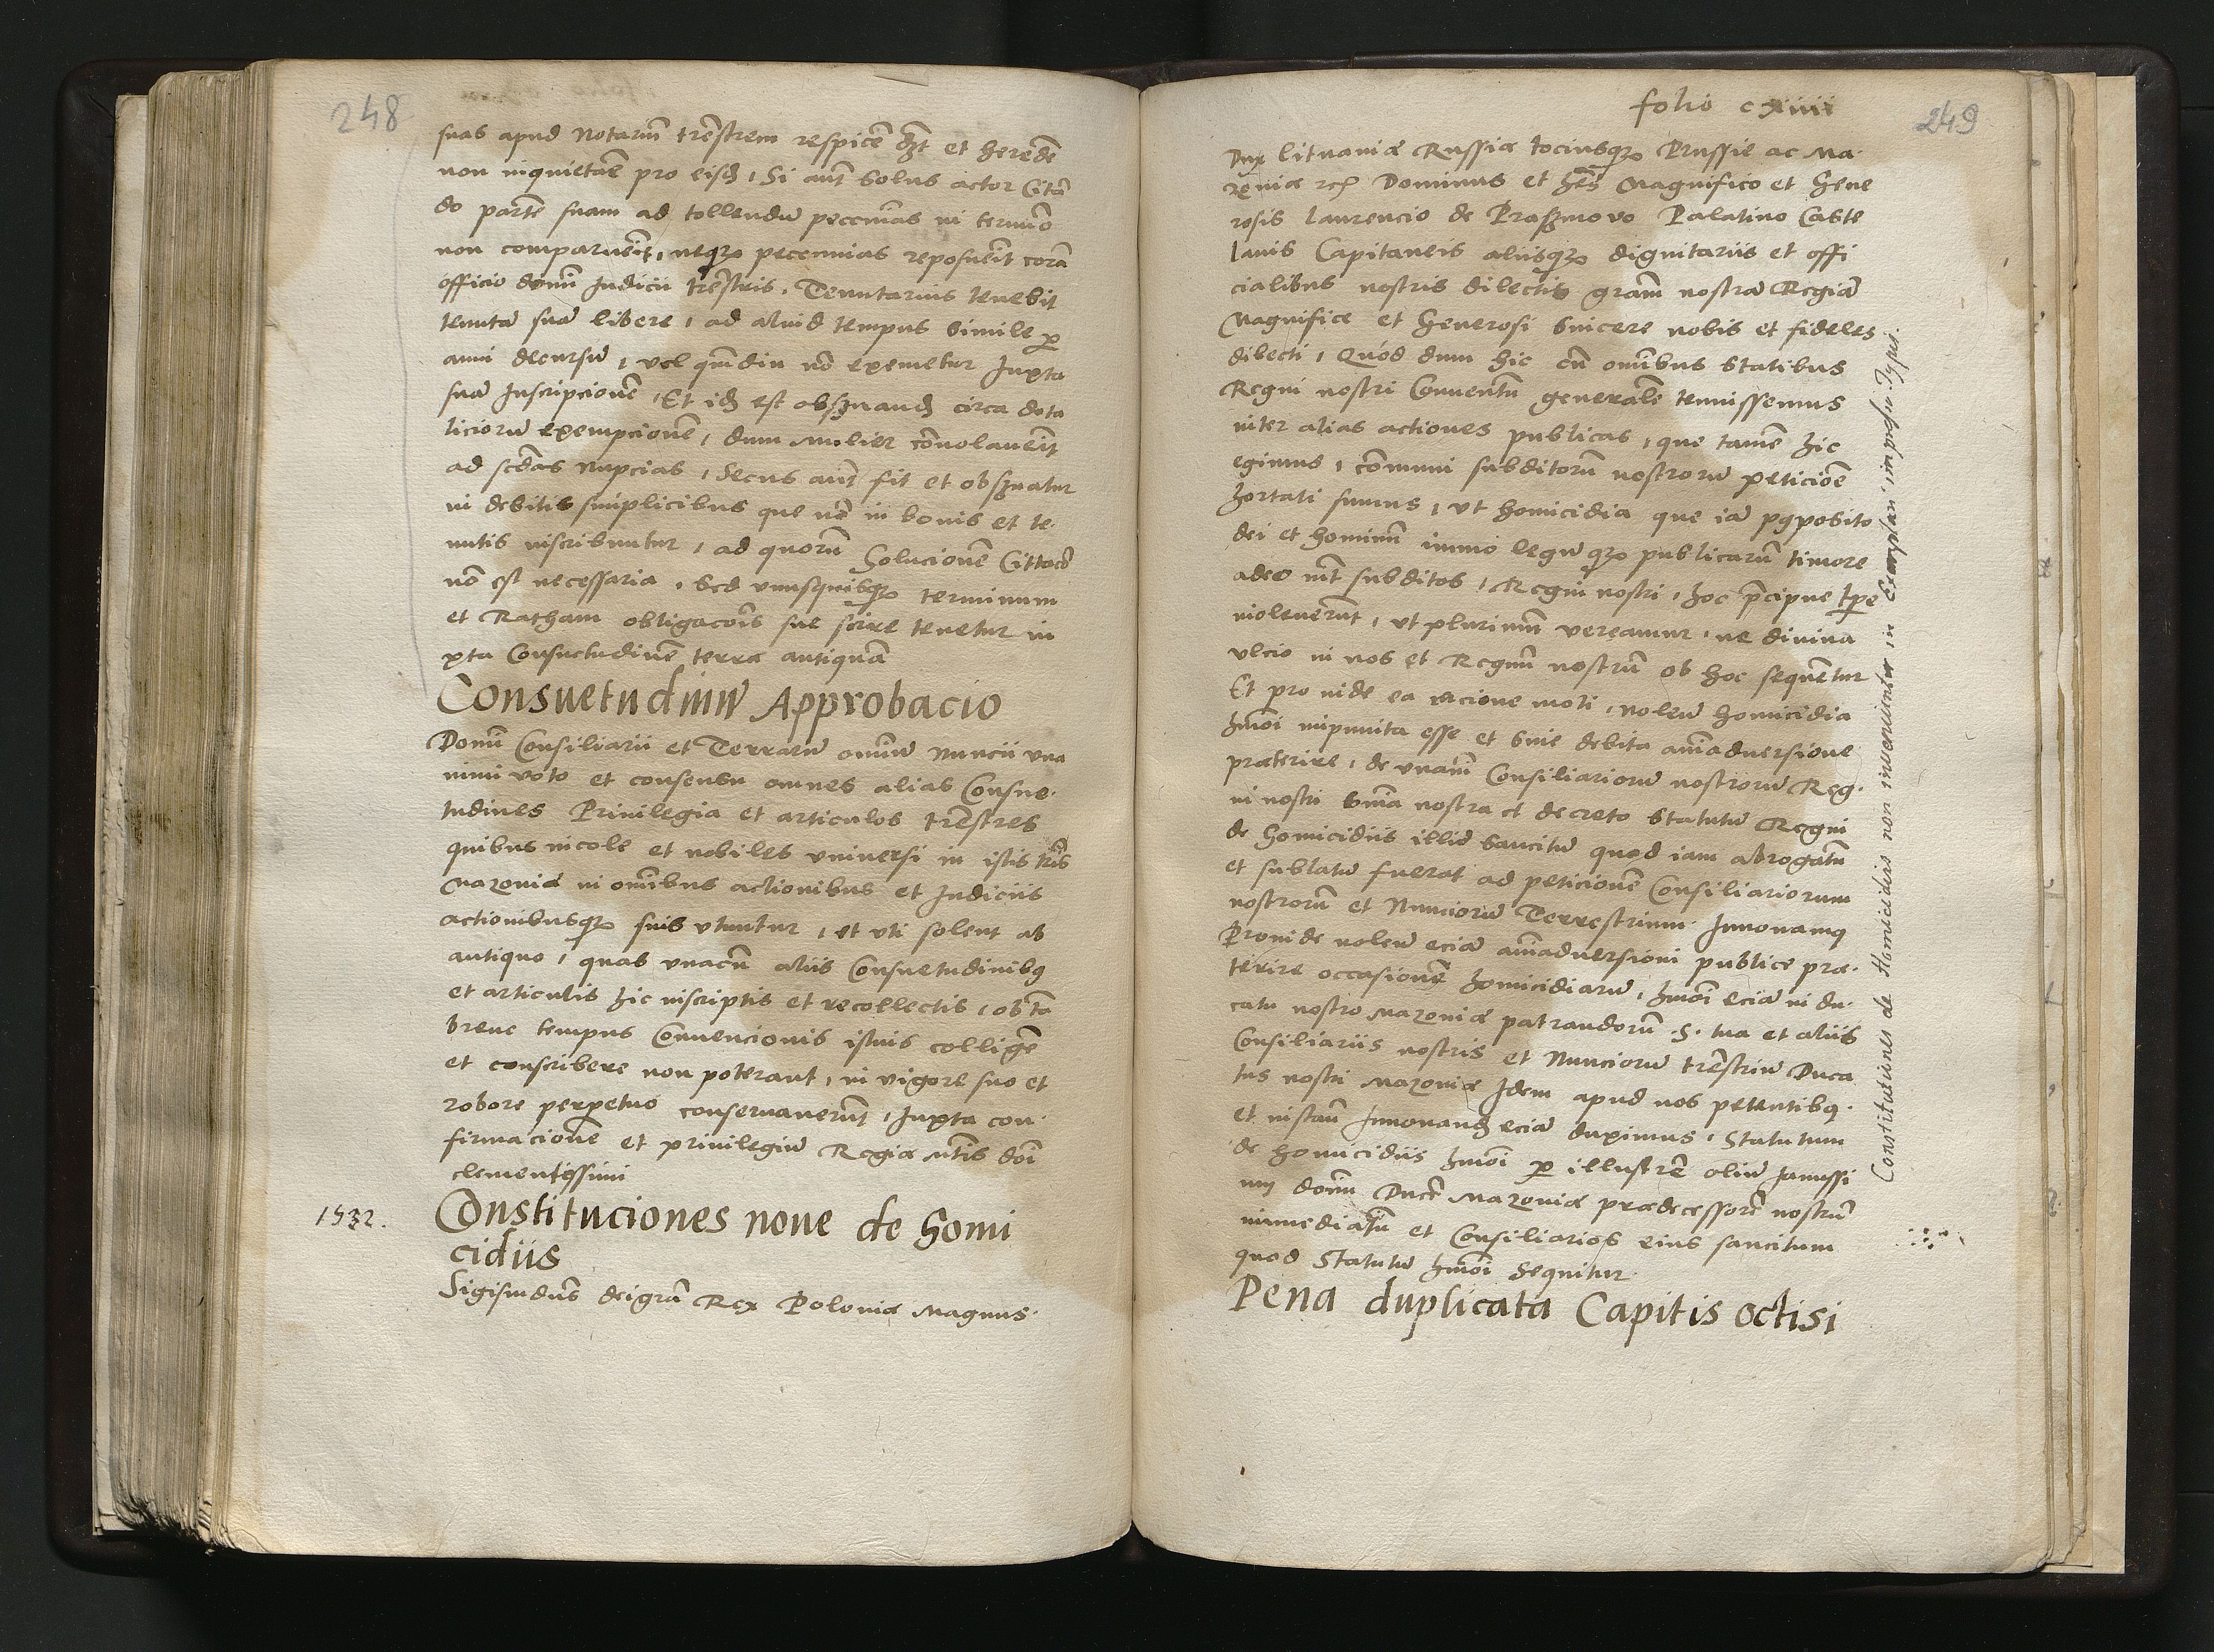 248
suas apud Notariū trēstrem respicē dꝫt et herede
non inquietaē pro eisdꝫ, Si aūt Solus actor Citā
do partē suam ad tollendū peccunias in termiō
non comparueīt, neqꝫ peccunias reposueīt corā
officio domī Judicii trēstris. Tenutarius tenebit
tenutā suā libere, ad aliud tempus Simile p
anni decursū, vel qmdiu nō exemetur Juxta
suā Inscripcionē, Et idꝫ est obsꝫuandꝫ circa dota
liciorū exempcionē, dum Mulier cōuolaueīt
ad scdas Nupcias, Secus aūt fit et obsꝫuatur
in debitis simplicibus que nō in bonis et te
nutis inscribuntur, ad quorū Solucionē Cittacō
nō est necessaria, Sed vnusquisqꝫ terminum
et Ratham obligacōis sue scire tenetur iu
xta Consuetudinē terræ antiquā
Consuetudinū Approbacio
Domī Consiliarii et Terrarū omniū Nuncii vna
nimi voto et consensu omnes alias Consue.
tudines Priuilegia et articulos trēstres
quibus incole et nobiles vniuersi in istis tris
Mazoniæ in omībus actionibus et Judiciis
actionibusqꝫ suis vtuntur, et vti solent ab
antiquo, quas vnacū aliis Consuetudinibꝫ
et articulis hic inscriptis et recollectis, ob tā
breue tempus Conuencionis istius colligē
et conscribere non poterant, in vigore suo et
robore perpetuo conseruauerūt, Juxta con.
firmacionē et priuilegiū Regiæ Mtis doī
clementissimi
1532.
Constituciones noue de homi
cidiis
Sigismūdus dei grā Rex Poloniæ Magnus.
folio cxiiii
249
Dux lituaniæ Russiæ tociusqꝫ Prussie ac Ma.
zouiæ rc Dominus et hēs Magnifico et Gene
rosis Laurencio de Prazmovo Palatino Caste
lanis Capitaneis aliisqꝫ dignitariis et offi
cialibus nostris dilectis grām nostrā Regiā
Magnifice et Generosi Sincere nobis et fideles
dilecti, Quód dum hic cū omībus Statibus
Regni nostri Conuentū generalē tenuissemus
inter alias actiones publicas, que tamē hic
egimus, cōmuni subditorū nostrorū peticiōe
hortati sumus, vt homicidia que iā pqposito
dei et hominū immo legū qꝫ publicarū timore
adeo int subditos, Regni nostri, hoc pcipue tpe
inoleuerūt, vt plurimū vereamur, ne diuina
vlcio in nos et Regnū nostrū ob hoc sequetur
Et pro inde ea racione moti, nolen homicidia
hmōi impunita esse et Sine debita aīaduersione
præterire, de vnanī Consiliariorū nostrorū Reg.
ni nostri Snīa nostra et decreto Statutū Regni
de homicidiis illud Sancitū quod iam abrogatū
et sublatū fuerat ad peticionē Consiliariorum
nostrorū et Nunciorū Terrestrium Innouamꝫ
Proinde nolen eciā aīaduersioni publice præ.
terire occasionē homicidiarū, hmōi eciā in du.
catu nostro Mazouiæ patrandorū .S. tua et aliis
Consiliariis nostris et Nunciorū trēstriū Duca
tus nostri Mazouiæ Idem apud nos petentibꝫ.
et instan Innouandꝫ eciā duximus, Statutum
de homicidiis hmōi p illustrē olim Janussi
um domī Ducē Mazouiæ prædecessorē nostrū
immediatū et Consiliarios eius sancitum
quod Statutū hmōi Sequitur.
Pena duplicata Capitis octisi
Constitutiones de Homicidiis non inueniuntur in Exemplari impresso Typis.